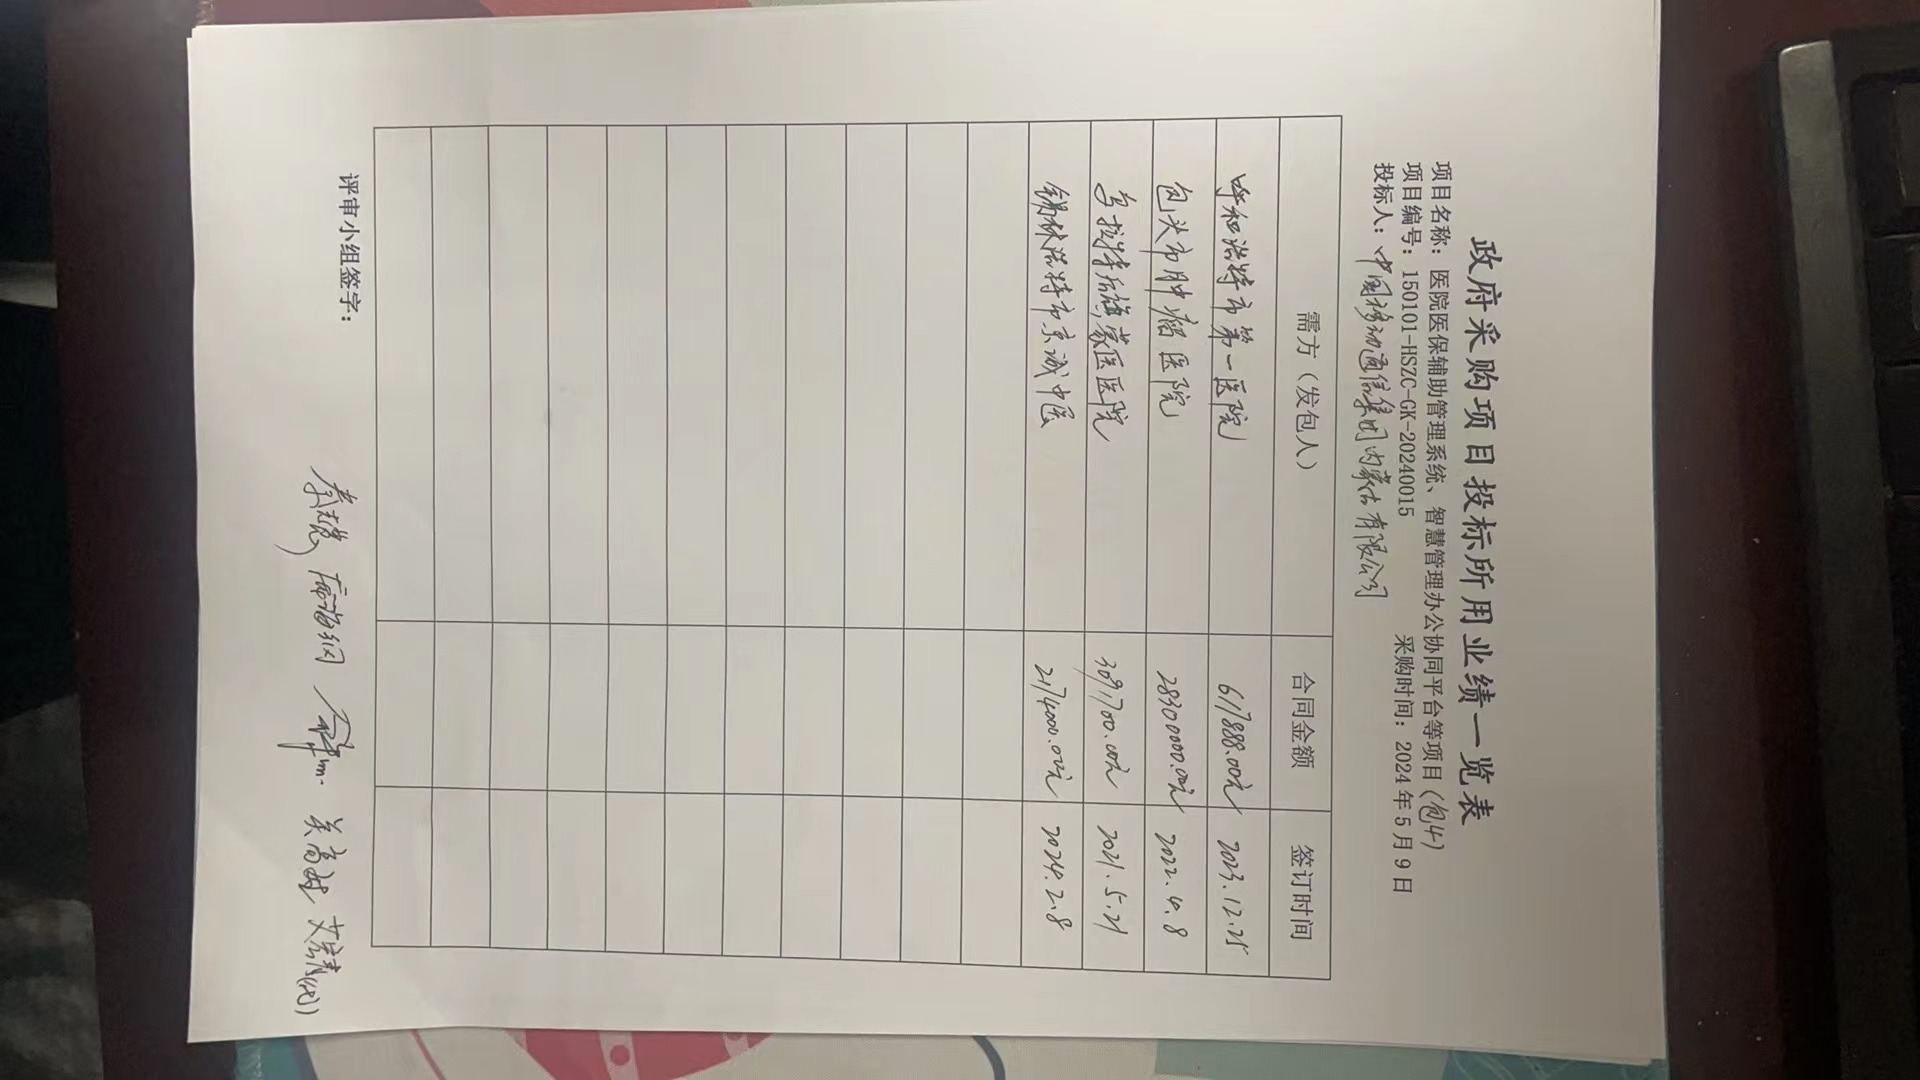 政府采购项目投标所用业绩一览表
项目名称：医院医保辅助管理系统、智慧管理办公协同平台等项目(包4)
项目编号：150101-HSZC-GK-20240015 采购时间：2024年5月9日
投标人：中国移动通信集团内蒙古有限公司
需方（发包人） 合同金额 签订时间
呼和浩特市第一医院 617888.00元 2023.12.25
包头市肿瘤医院 28300000.00元 2022.4.8
乌拉特后旗蒙医医院 3091700.00元 2021.5.21
锡林浩特市京诚中医 2174000.00元 2024.2.8
评审小组签字：